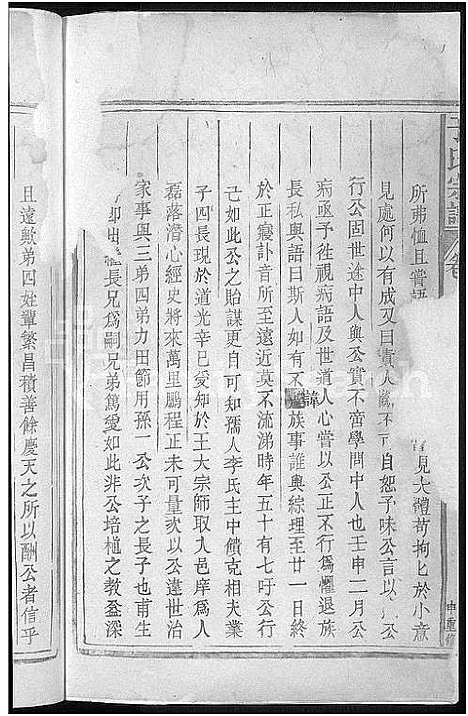 所弗恤且嘗語 見大體苟拘匕於小意
見處何以有成又曰責人 不可自恕予味公言以 公
行公固世途中人與公實不啻學問中人也壬申二月公
病亟予往視病語及世道人心嘗以公正不行為懼退族
長私與語曰斯人如有不諱族事誰與綜理至廿一日終
於正寢訃音所至遠近莫不流涕時年五十有七吁公行
己如此公之貽謀更自可知孺人李氏主中饋克相夫業
子四長現於道光辛巳受知於王大宗師取入邑庠為人
磊落潛心經史將來萬里鵬程正未可量次以公違世治
家事與三弟四弟力田節用孫一公次子之長子也甫生
即出 長兄為嗣兄弟篤愛如此非公培植之教益深
且遠歟弟四姓輩繁昌積善餘慶天之所以酬公者信乎
氏宗譜
卷
重修